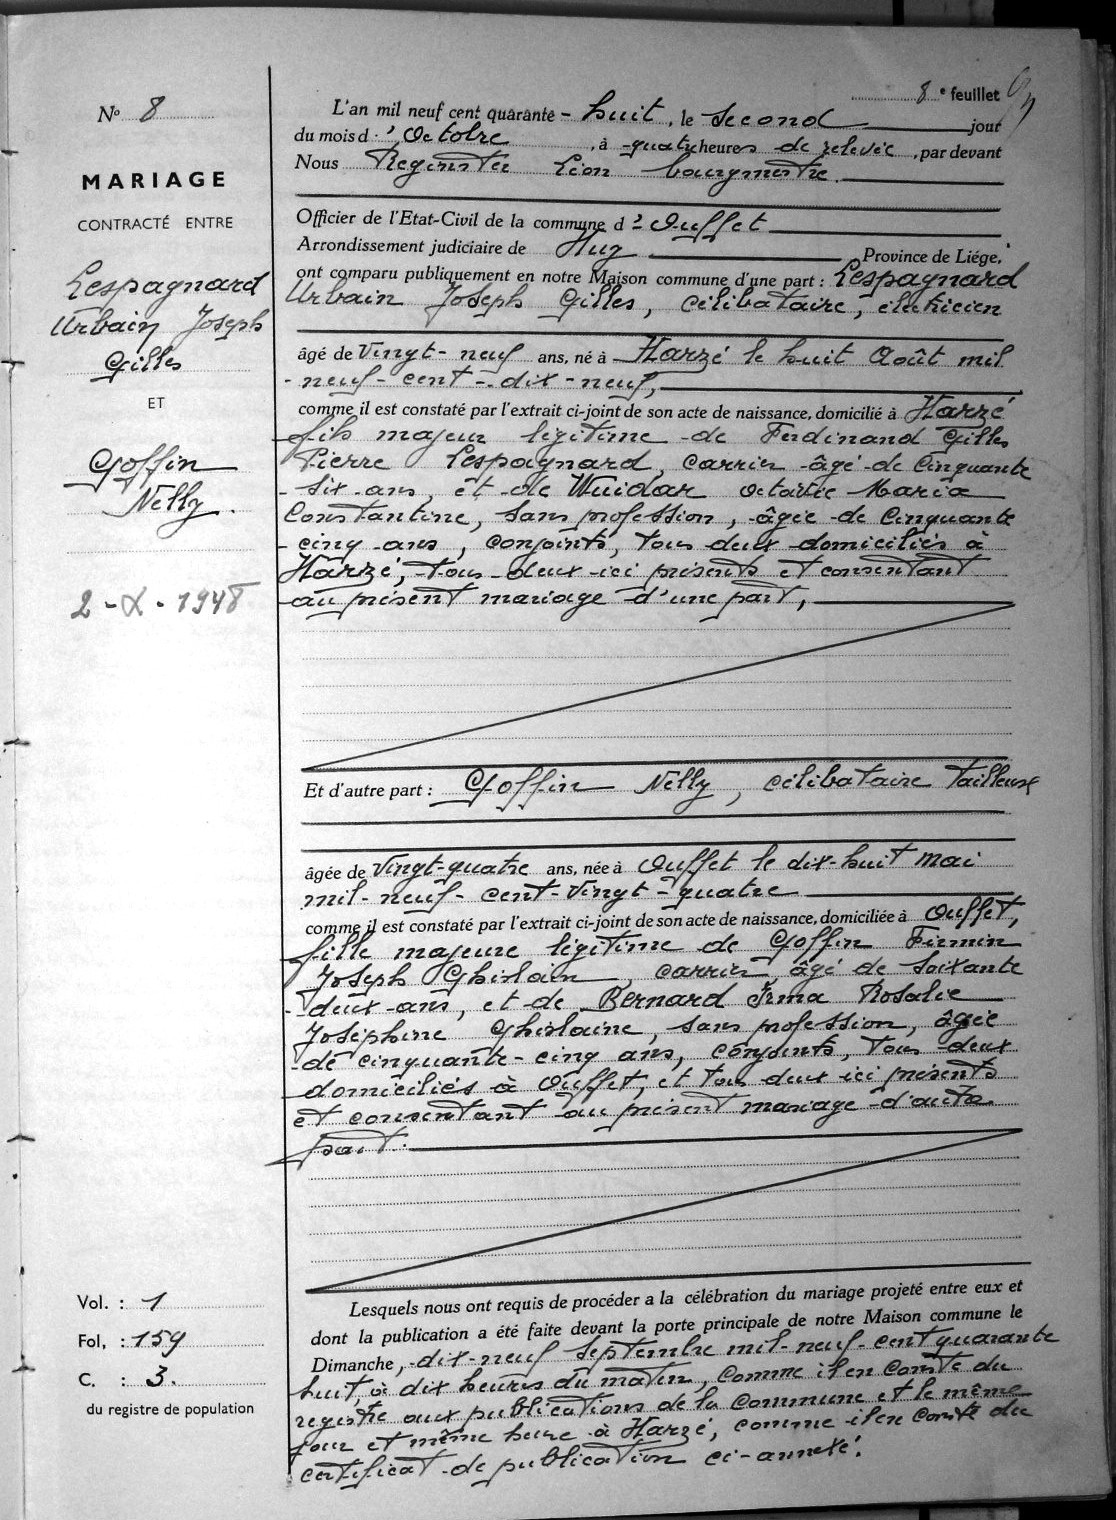 8e feuillet
N° 8
MARIAGE
CONTRACTÉ ENTRE
Lespagnard
Urbain Joseph
Gilles
ET
Goffin
Nelly.
2-X-1948
Vol. : 1
Fol, : 159
C. : 3.
du registre de population
L'an mil neuf cent quarante-huit, le second jour
du mois d'Octobre, à quatre heures de relevée, par devant
Nous Léon bourgmestre
Officier de l'Etat-Civil de la commune d'Ouffet
Arrondissement judiciaire de Huy Province de Liége,
ont comparu publiquement en notre Maison commune d'une part : Lespagnard
Urbain Joseph Gilles, célibataire, électricien
âgé de Vingt-neuf ans, né à Harzé le huit Août mil
-neuf-cent-dix-neuf,
comme il est constaté par l'extrait ci-joint de son acte de naissance, domicilié à Harzé
fils majeur légitime de Ferdinand Gilles
Pierre Lespagnard, carrier âgé de Cinquante
-six ans, et de Wuidar Octavie Maria
Constantine, sans profession, âgée de Cinquante
-cinq ans, conjoints, tous deux domiciliés à
Harzé, tous deux ici présents et consentant
au présent mariage d'une part,
Et d'autre part : Goffin Nelly, célibataire tailleuse
âgée de Vingt-quatre ans, née à Ouffet le dix-huit mai
mil-neuf-cent-Vingt-quatre
comme il est constaté par l'extrait ci-joint de son acte de naissance, domiciliée à Ouffet,
fille majeure légitime de Goffin Firmin
Joseph Ghislain, carrier âgé de Soixante
-deux ans, et de Bernard Irma Rosalie
Joséphine Ghislaine, sans profession, âgée
de cinquante-cinq ans, conjoints, tous deux
domiciliés à Ouffet, et tous deux ici présents
et consentant au présent mariage d'autre
part.
Lesquels nous ont requis de procéder a la célébration du mariage projeté entre eux et
dont la publication a été faite devant la porte principale de notre Maison commune le
Dimanche, dix-neuf septembre mil-neuf-cent quarante
huit, à dix heures du matin, comme il en conste du
registre aux publications de la Commune et le même
jour et même heure à Harzé, comme il en conste du
certificat de publication ci-annexé.